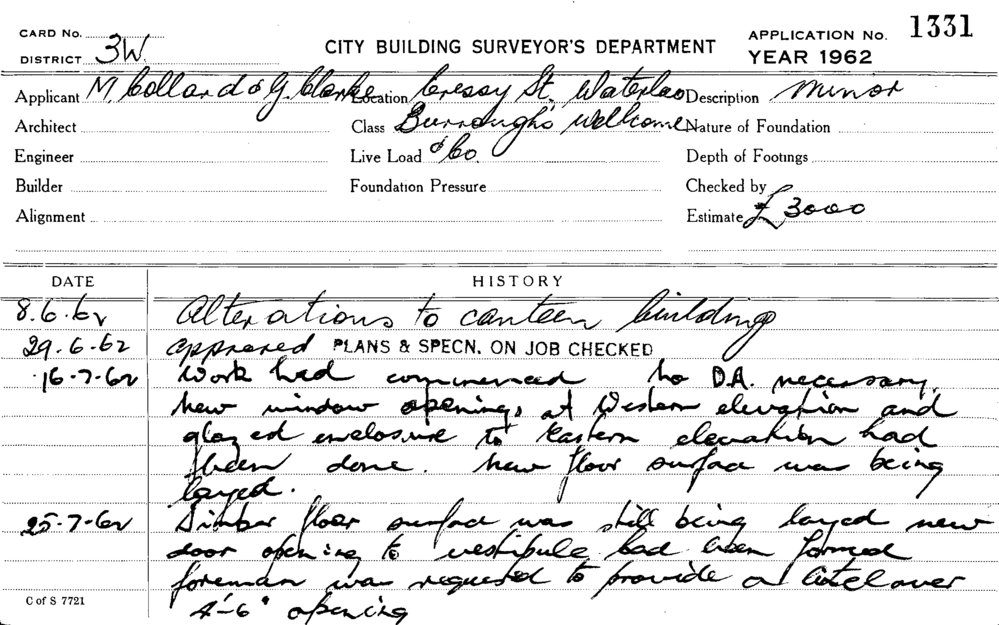 CARD No.
DISTRICT 3W.
CITY BUILDING SURVEYOR'S DEPARTMENT
APPLICATION No. 1331
YEAR 1962
Applicant M. Collard & G. Clarke Location Cressy St. Waterloo Description Minor
Architect Class Burroughs Wellcome Nature of Foundation
Engineer Live Load & Co. Depth of Footings
Builder Foundation Pressure Checked by
Alignment Estimate £3000
DATE HISTORY
8.6.62 Alterations to canteen building
29.6.62 approved PLANS & SPECN. ON JOB CHECKED
16-7-62 Work had commenced no D.A. necessary.
New window openings at Western elevation and
glazed enclosure to Eastern elevation had
been done. New floor surface was being
layed.
25-7-62 Timber floor surface was still being layed new
door opening to vestibule had been formed
foreman was requested to provide a lintel over
4'-6" opening
C of S 7721